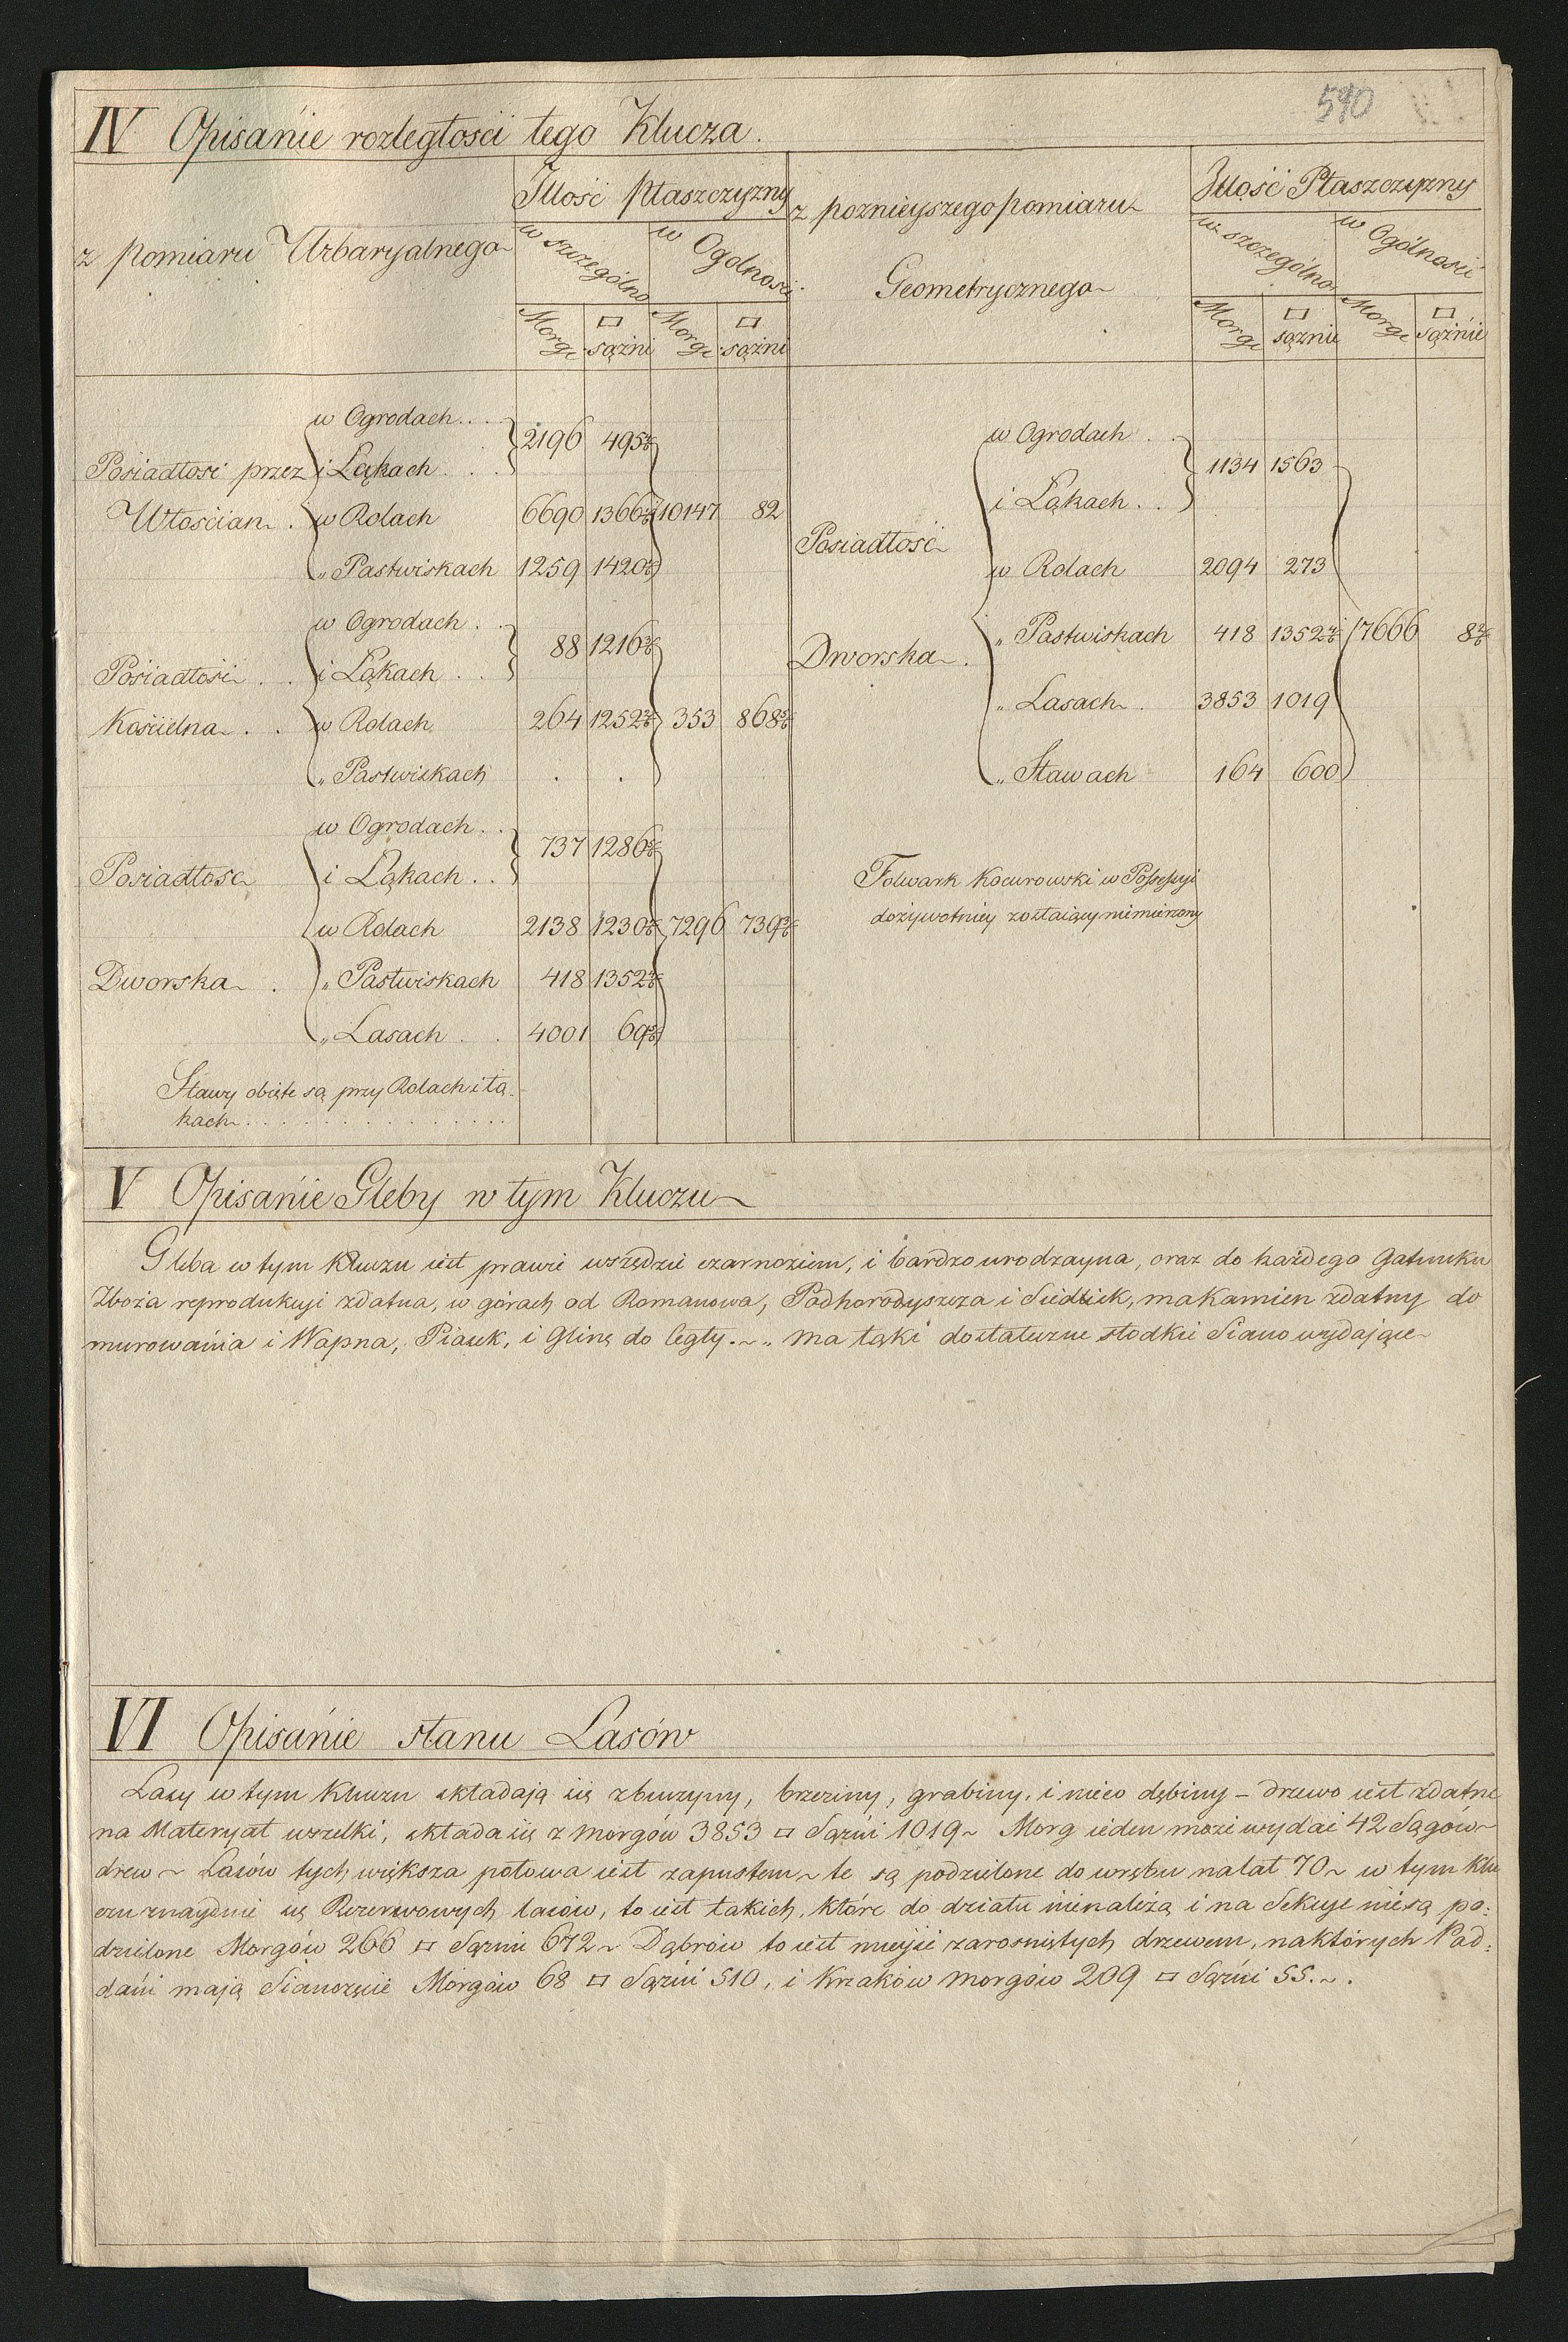 590
IV Opisańie rozległości tego Klucza.
z pomiaru Urbaryalnego
Illość Płaszczyzny
w szczególno
w Ogolności
Morgi □ sążni Morgi □ sążni
z poznieyszego pomiaru
Geometrycznego
Illość Płaszczyzny
w szczególno
w Ogólności
Morgi □ sążnie Morgi □ sążnie
Posiadłość przez Włościan
w Ogrodach
i Łąkach 2196 495
w Rolach 6690 1366 10147 82
„ Pastwiskach 1259 1420
Posiadłość Kościelna
w Ogrodach
i Łąkach 88 1216
w Rolach 264 1252 353 868
„ Pastwiskach . .
Posiadłość Dworska
w Ogrodach
i Łąkach 737 1286
w Rolach 2138 1230 7296 739
„ Pastwiskach 418 1352
„ Lasach 4001 69
Stawy obięte są przy Rolach i łą-
kach
Posiadłość Dworska
w Ogrodach
i Łąkach 1134 1563
w Rolach 2094 273
„ Pastwiskach 418 1352 7666 8
„ Lasach 3853 1019
„ Stawach 164 600
Folwark Kocurowski w Possessyi
dożywotniey zostaiący niemierzony
V Opisańie Gleby w tym Kluczu
Gleba w tym Kluczu iest prawie wszędzie czarnoziem, i bardzo urodzayna, oraz do każdego Gatunku
Zboża reprodukcyi zdatna, w górach od Romanowa, Podhorodyszcza i Siedlisk, ma kamien zdatny do
murowańia i Wapna, Piasek, i Glinę do Cegły. ~ „ ma łąki dostateczne słodkie Siano wydaiące
VI Opisańie stanu Lasów
Lasy w tym Kluczu składają się z buczyny, brzeziny, grabiny, i nieco dębiny – drzewo iest zdatne
na Materyał wszelki, składa się z morgów 3853 □ Sążni 1019 ~ Morg ieden może wydać 42 Sągów
drew ~ Lasów tych większa połowa iest zapustem ~ te są podzielone do wrębu na lat 70 ~ w tym Klu
czu znayduie się Rezerwowych lasów, to iest takich, które do działu nienależą i na Sekcye niesą po:
dzielone Morgów 266 □ Sążni 672 ~ Dąbrów to iest mieysc zarosniętych drzewem, na których Pod:
dańi mają Sianożęcie Morgów 68 □ Sążni 510, i Krzaków morgów 209 □ Sążni 55. ~ .